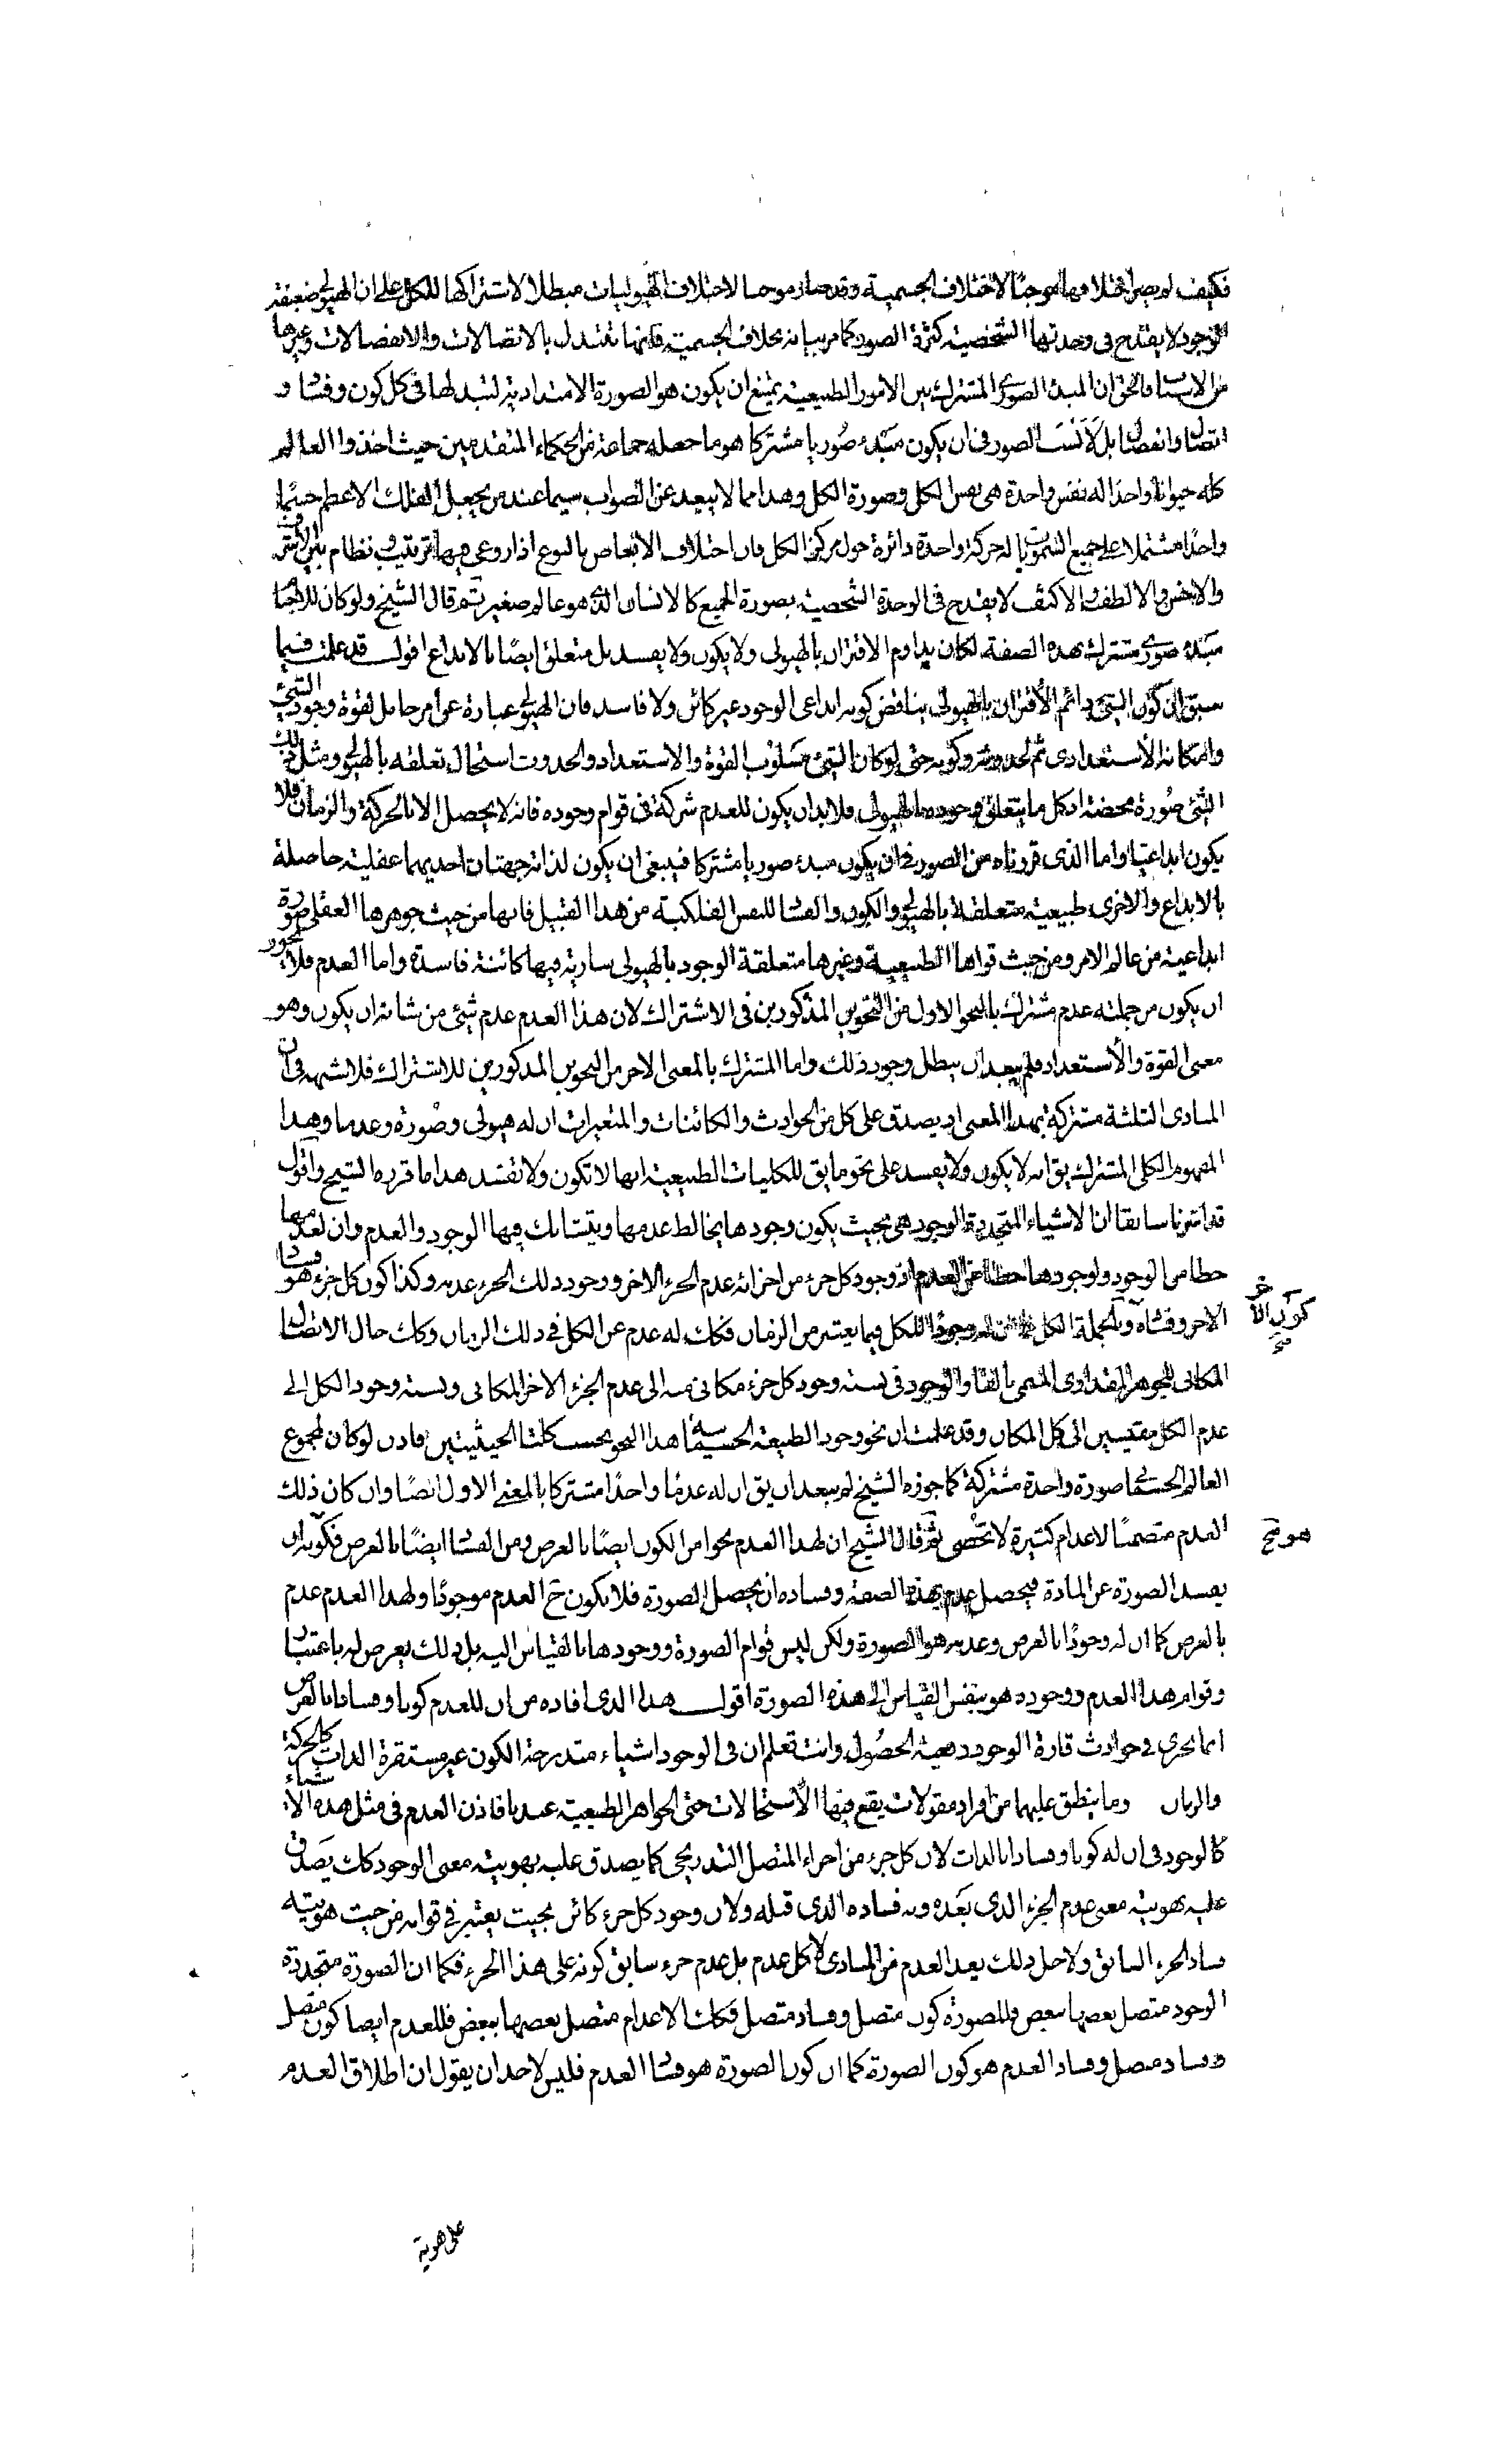 فكيف لم يصر اختلافها موجبًا لاختلاف الجسمية وقد صار موجبا لاختلاف الهيوليات مبطلا لاشتراكها للكل على ان الهيولى ضعيفة
الوجود لا يقدح فى وحدتها الشخصية كثرة الصور كما مر بيانه بخلاف الجسمية فانها تتبدل بالاتصالات والانفصالات وغيرها
من الاسباب فالحق ان المبدء الصورى المشترك بين الامور الطبيعية يمتنع ان يكون هو الصورة الامتدادية لتبدلها فى كل كون وفساد و
اتصال وانفصال بل الانسب الصور فى ان يكون مبدء صوريا مشتركا هو ما حصله جماعة من الحكماء المتقدمين حيث اخذوا العالم
كله حيوانا واحدا له نفس واحدة هى نفس الكل وصورة الكل وهذا مما لا يبعد عن الصواب سيما عند من يجعل الفلك الاعظم جسمًا
واحدًا مشتملا على جميع السمويات له حركة واحدة دائرة حول مركز الكل فان اختلاف الابعاض بالنوع اذا روعى فيها ترتيب ونظام بين الاشرف
والاخس والالطف والاكثف لا يقدح فى الوحدة الشخصية بصورة الجميع كالانسان الذى هو عالم صغير ثم قال الشيخ ولو كان للاجسام
مبدء صورى مشترك بهذه الصفة لكان يداوم الاقتران بالهيولى ولا يكون ولا يفسد بل متعلق ايضًا بالابداع اقول قد علمت فيما
سبق ان كون الشئ دائم الاقتران بالهيولى يناقض كونه ابداعى الوجود غير كائن ولا فاسد فان الهيولى عبارة عن امر حامل لقوة وجود الشئ
وامكانه الاستعدادى ثم لحدوثه وكونه حتى لو كان الشئ مسلوب القوة والاستعداد والحدوث استحال تعلقه بالهيولى ومثل ذلك
الشئ صورة محضة اذ كل ما يتعلق وجوده بالهيولى فلا بد ان يكون للعدم شركة فى قوام وجوده فانه لا يحصل الا بالحركة والزمان فلا
يكون ابداعيا واما الذى قررناه من الصور فى ان يكون مبدء صوريا مشتركا فينبغى ان يكون لذاته جهتان احديهما عقلية حاصلة
بالابداع والاخرى طبيعية متعلقة بالهيولى والكون والفساد للنفس الفلكية من هذا القبيل فانها من حيث جوهرها العقلى صورة
ابداعية من عالم الامر ومن حيث قواها الطبيعية وغيرها متعلقة الوجود بالهيولى سارية فيها كائنة فاسدة واما العدم فلا يجوز
ان يكون من جملته عدم مشترك بالنحو الاول من النحوين المذكورين فى الاشتراك لان هذا العدم عدم شئ من شانه ان يكون وهو
معنى القوة والاستعداد فلم يبعد ان يبطل وجود ذلك واما المشترك بالمعنى الاخر من النحوين المذكورين للاشتراك فلا شبهة فى ان
المبادى الثلثة مشتركة بهذا المعنى اذ يصدق على كل من الحوادث والكائنات والمتغيرات ان له هيولى وصورة وعدما وهذا
المفهوم الكلى المشترك يق انه لا يكون ولا يفسد على نحو ما يق للكليات الطبيعية انها لا تكون ولا تفسد هذا ما قرره الشيخ واقول
قد اشرنا سابقا ان الاشياء المتجددة الوجود هى بحيث يكون وجودها يخالط عدمها ويتشابك فيها الوجود والعدم وان لعدمها
حظا من الوجود ولوجودها حظا من العدم اذ وجود كل جزء من اجزائه عدم الجزء الاخر ووجود ذلك الجزء عدمه وكذا كون كل جزء هو فساد
الاخر وفساده كون الآخر وبالجملة الكل وجودًا للكل فيما يعتبر من الزمان فكك له عدم عن الكل فى ذلك الزمان وكك حال الاتصال
المكانى للجوهر المقدارى المسمى بالبقاء والوجود فى نسبة وجود كل جزء مكانى منه الى عدم الجزء الاخر المكانى ونسبة وجود الكل الى
عدم الكل مقيسين الى كل المكان وقد علمت ان نحو وجود الطبيعة الجسمانية هذا النحو بحسب كلتا الحيثيتين فاذن لو كان لمجموع
العالم الجسمانى صورة واحدة مشتركة كما جوزه الشيخ لم يبعد ان يق ان له عدمًا واحدًا مشتركا بالمعنى الاول ايضًا وان كان ذلك
العدم متضمنًا لاعدام كثيرة لا تحصى ثم قال الشيخ ان لهذا العدم نحوا من الكون ايضًا بالعرض ومن الفساد ايضًا بالعرض فكونه هو ان
يفسد الصورة عن المادة فيحصل عدم بهذه الصفة وفساده ان يحصل الصورة فلا يكون ح العدم موجودًا ولهذا العدم عدم
بالعرض كما ان له وجودًا بالعرض وعدمه هو الصورة ولكن ليس قوام الصورة ووجودها بالقياس اليه بل ذلك يعرض له باعتبار
وقوام هذا العدم ووجوده هو بنفس القياس الى هذه الصورة اقول هذا الذى افاده من ان للعدم كونا وفسادا بالعرض
انما يجرى فى حوادث قارة الوجود دفعية الحصول وانت تعلم ان فى الوجود اشياء متدرجة الكون غير مستقرة الذات كالحركة
والزمان وما ينطبق عليهما من افراد مقولات يقع فيها الاستحالات حتى الجواهر الطبيعية عندنا فاذن العدم فى مثل هذه الاشياء
كالوجود فى ان له كونا وفسادا بالذات لان كل جزء من اجزاء المتصل التدريجى كما يصدق عليه بهويته معنى الوجود كك يصدق
عليه بهويته معنى عدم الجزء الذى بعده وفساده الذى قبله ولان وجود كل جزء كائن بحيث يعتبر فى قوامه من حيث هويته
فساد الجزء السابق ولاجل ذلك يعد العدم من المبادى لا كل عدم بل عدم جزء سابق كونه على هذا الجزء فكما ان الصورة متجددة
الوجود متصل بعضها ببعض وللصورة كون متصل وفساد متصل فكك الاعدام متصل بعضها ببعض فللعدم ايضا كون متصل
وفساد متصل وفساد العدم هو كون الصورة كما ان كون الصورة هو فساد العدم فليس لاحد ان يقول ان اطلاق العدم
على هوية